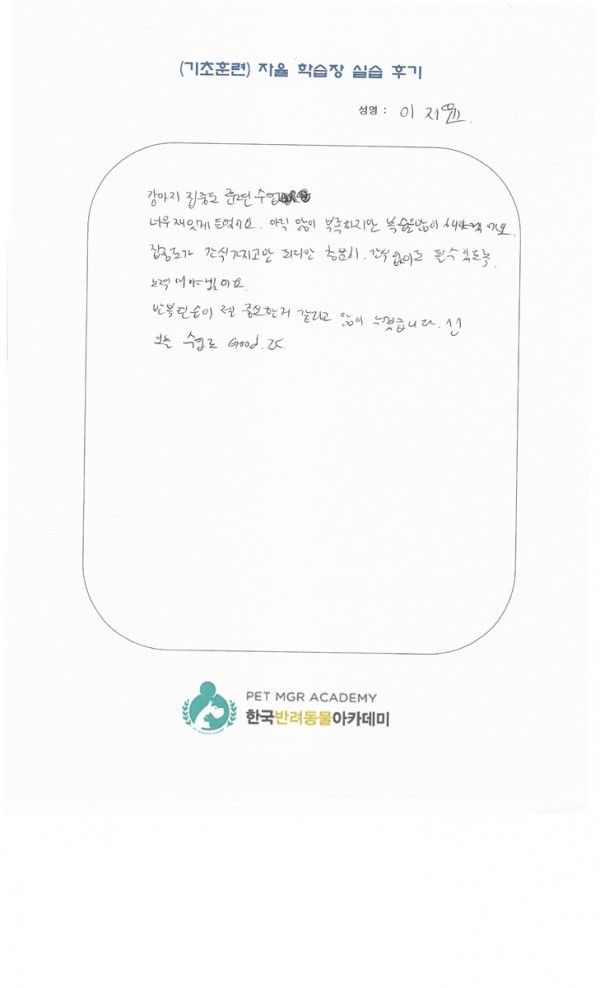 (기초훈련) 자율 학습장 실습 후기
성명 : 이 지
강아지 집중도 훈련 수업
너무 재밌게 들었어요. 아직 많이 부족하지만 복습을 많이
집중도가 간식 가지고만 되지만 충분히. 간식 없이도 될수 있도록
노력 해야
반복 이 젤 중요한거 같다고 많이 느꼈습니다.
오늘 수업도 Good.
PET MGR ACADEMY
한국반려동물아카데미